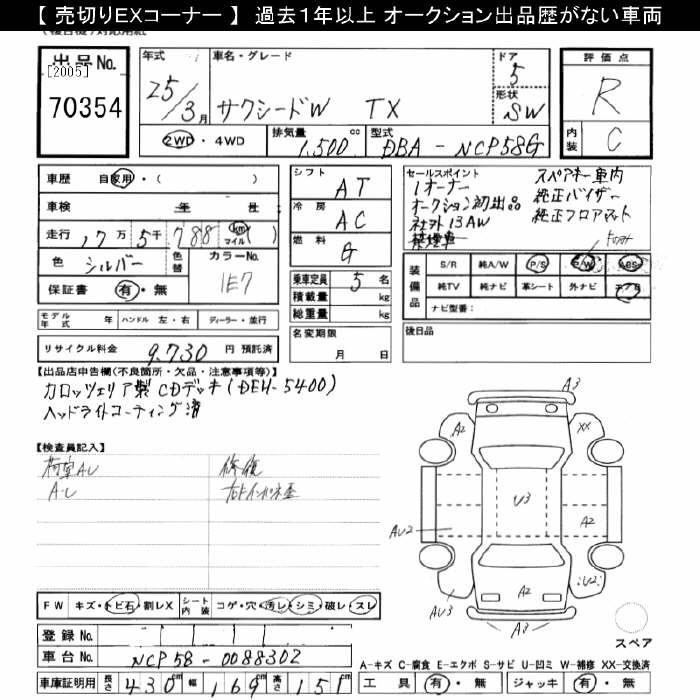 【 売切りEXコーナー 】 過去1年以上 オークション出品歴がない車両
出品No.
[2005]
70354
年式
25/3月
車名・グレード
サクシードW TX
ドア
5
形状
SW
評価点
R
内装
C
2WD ・ 4WD
排気量
1,500cc
型式
DBA - NCP58G
車歴 自家用・( )
車検 年 月
走行 17万 5千 788 km マイル ( )
色 シルバー 色替
カラーNo.
1E7
保証書 有・無
モデル年式 年 ハンドル 左・右 ディーラー・並行
リサイクル料金 9,730 円 預託済
シフト AT
冷房 AC
燃料 G
乗車定員 5 名
積載量 kg
総重量 kg
名変期限
月 日
セールスポイント
1オーナー
オークション初出品
社外13AW
禁煙車
スペアキー車内
純正バイザー
純正フロアマット
装備品
S/R 純A/W P/S P/W ABS
純TV 純ナビ 革シート 外ナビ エアB
ナビ型番:
後日品
【出品店申告欄(不良箇所・欠品・注意事項等)】
カロッツェリア製 CDデッキ(DEH-5400)
ヘッドライトコーティング済
【検査員記入】
荷室AU
A-U
修復
右Fインパネ歪
FW キズ・トビ石・割レX シート内装 コゲ・穴・汚レ・シミ・破レ・スレ
登録No.
車台No. NCP58-0088302
車庫証明用 長さ 430cm 幅 169cm 高さ 151cm
A3
A2
XX
U3
AU2
A2
A2
U2
AU3
A3
スペア
A-キズ C-腐食 E-エクボ S-サビ U-凹ミ W-補修 XX-交換済
工具 有・無 ジャッキ 有・無